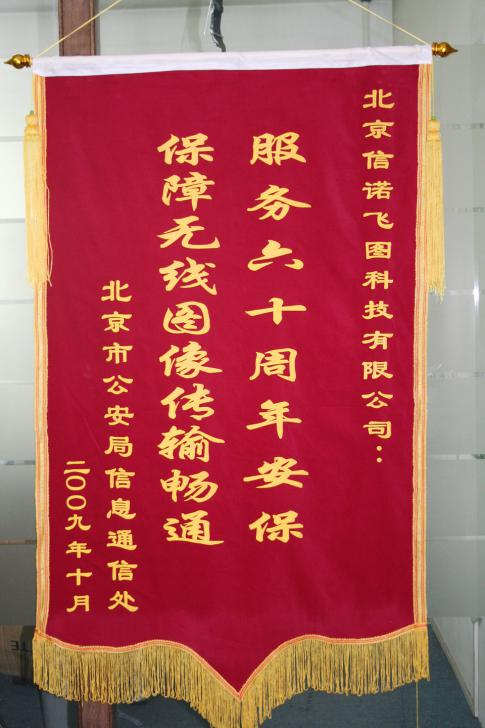 北京信诺飞图科技有限公司：
服务六十周年安保
保障无线图像传输畅通
北京市公安局信息通信处
二〇〇九年十月